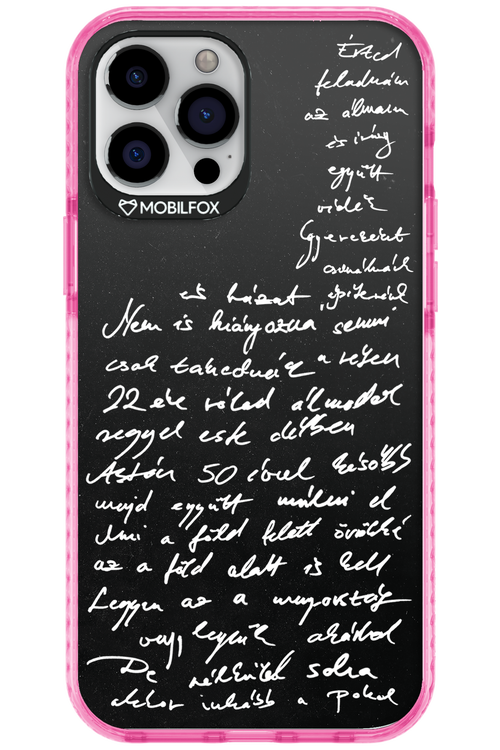 MOBILFOX
Érted
feladnám
az álmam
és írny
együtt
vidék
Gyerekeket
csinálnánk
és házat építenénk
Nem is hiányozna semmi
csak takednánk a réten
22 éve rólad álmodok
reggel este délben
Aztán 50 évvel később
majd együtt múlni el
Ami a föld felett örökké
az a föld alatt is kell
Legyen az a menyország
vagy legyünk akárhol
De nélküled soha
akkor inkább a Pokol